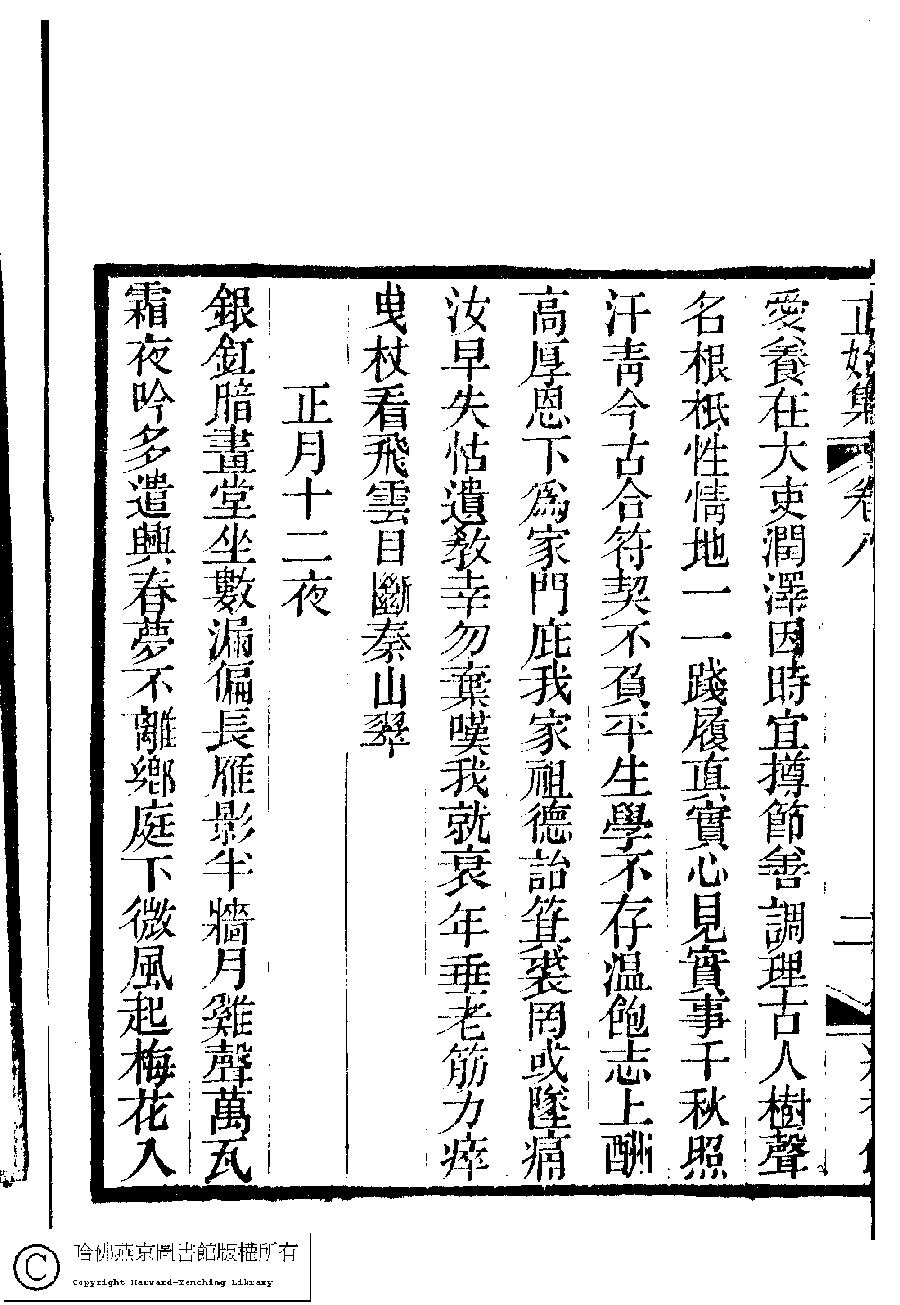 正始集 卷八 二
愛養在大吏潤澤因時宜撙節善調理古人樹聲
名根柢性情地一一踐履真實心見實事千秋照
汗靑今古合符契不負平生學不存温飽志上酬
高厚恩下爲家門庇我家祖德詒箕裘罔或墜痛
汝早失怙遺敎幸勿棄嘆我就衰年垂老筋力瘁
曳杖看飛雲目斷秦山翠
正月十二夜
銀釭暗畫堂坐數漏偏長雁影半牆月雞聲萬瓦
霜夜吟多遣興春夢不離鄕庭下微風起梅花入
哈佛燕京圖書館版權所有
Copyright Harvard-Yenching Library